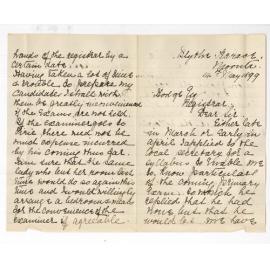 Blythe Terrace
Moonta
14th May 1899
Hodge Esq
Registrar.
Dear Sir
Either late
in March or early in
April I applied to the
local secretary for a
syllabus to enable me
to know particulars
of the coming primary
exam. to which he
replied that he had
none but that he
would let me have
hands of the registrar by a
certain date.
Having taken a lot of time
& trouble to prepare my
candidates I shall with
them be greatly inconvenienced
if the exams are not held.
If the examiner goes to
Pirie there need not be
much expense incurred
by his coming thus far.
I am sure that the same
lady who let her room last
time would do so again this
time and I would willingly
arrange a bedroom & meals
for the convenience of the
examiner if agreeable